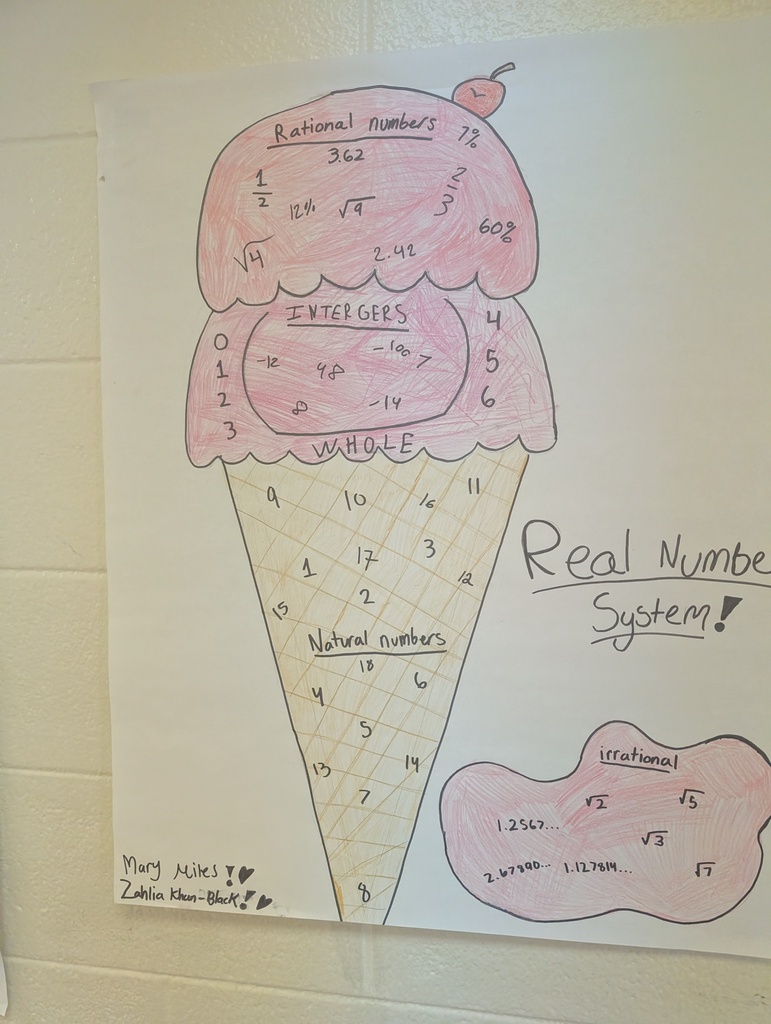 Rational numbers 7%
3.62
1/2 12% √9 2/3
60%
√4 2.42
INTERGERS
0 4
-12 48 -100 7
1 5
2 8 -14 6
3
WHOLE
9 10 16 11
1 17 3 12
15 2
Natural numbers
18
4 6
5
13 14
7
8
Real Numbe
System!
irrational
√2 √5
1.2567...
√3
2.67890... 1.127814... √7
Mary Miles!
Zahlia Khan-Black!